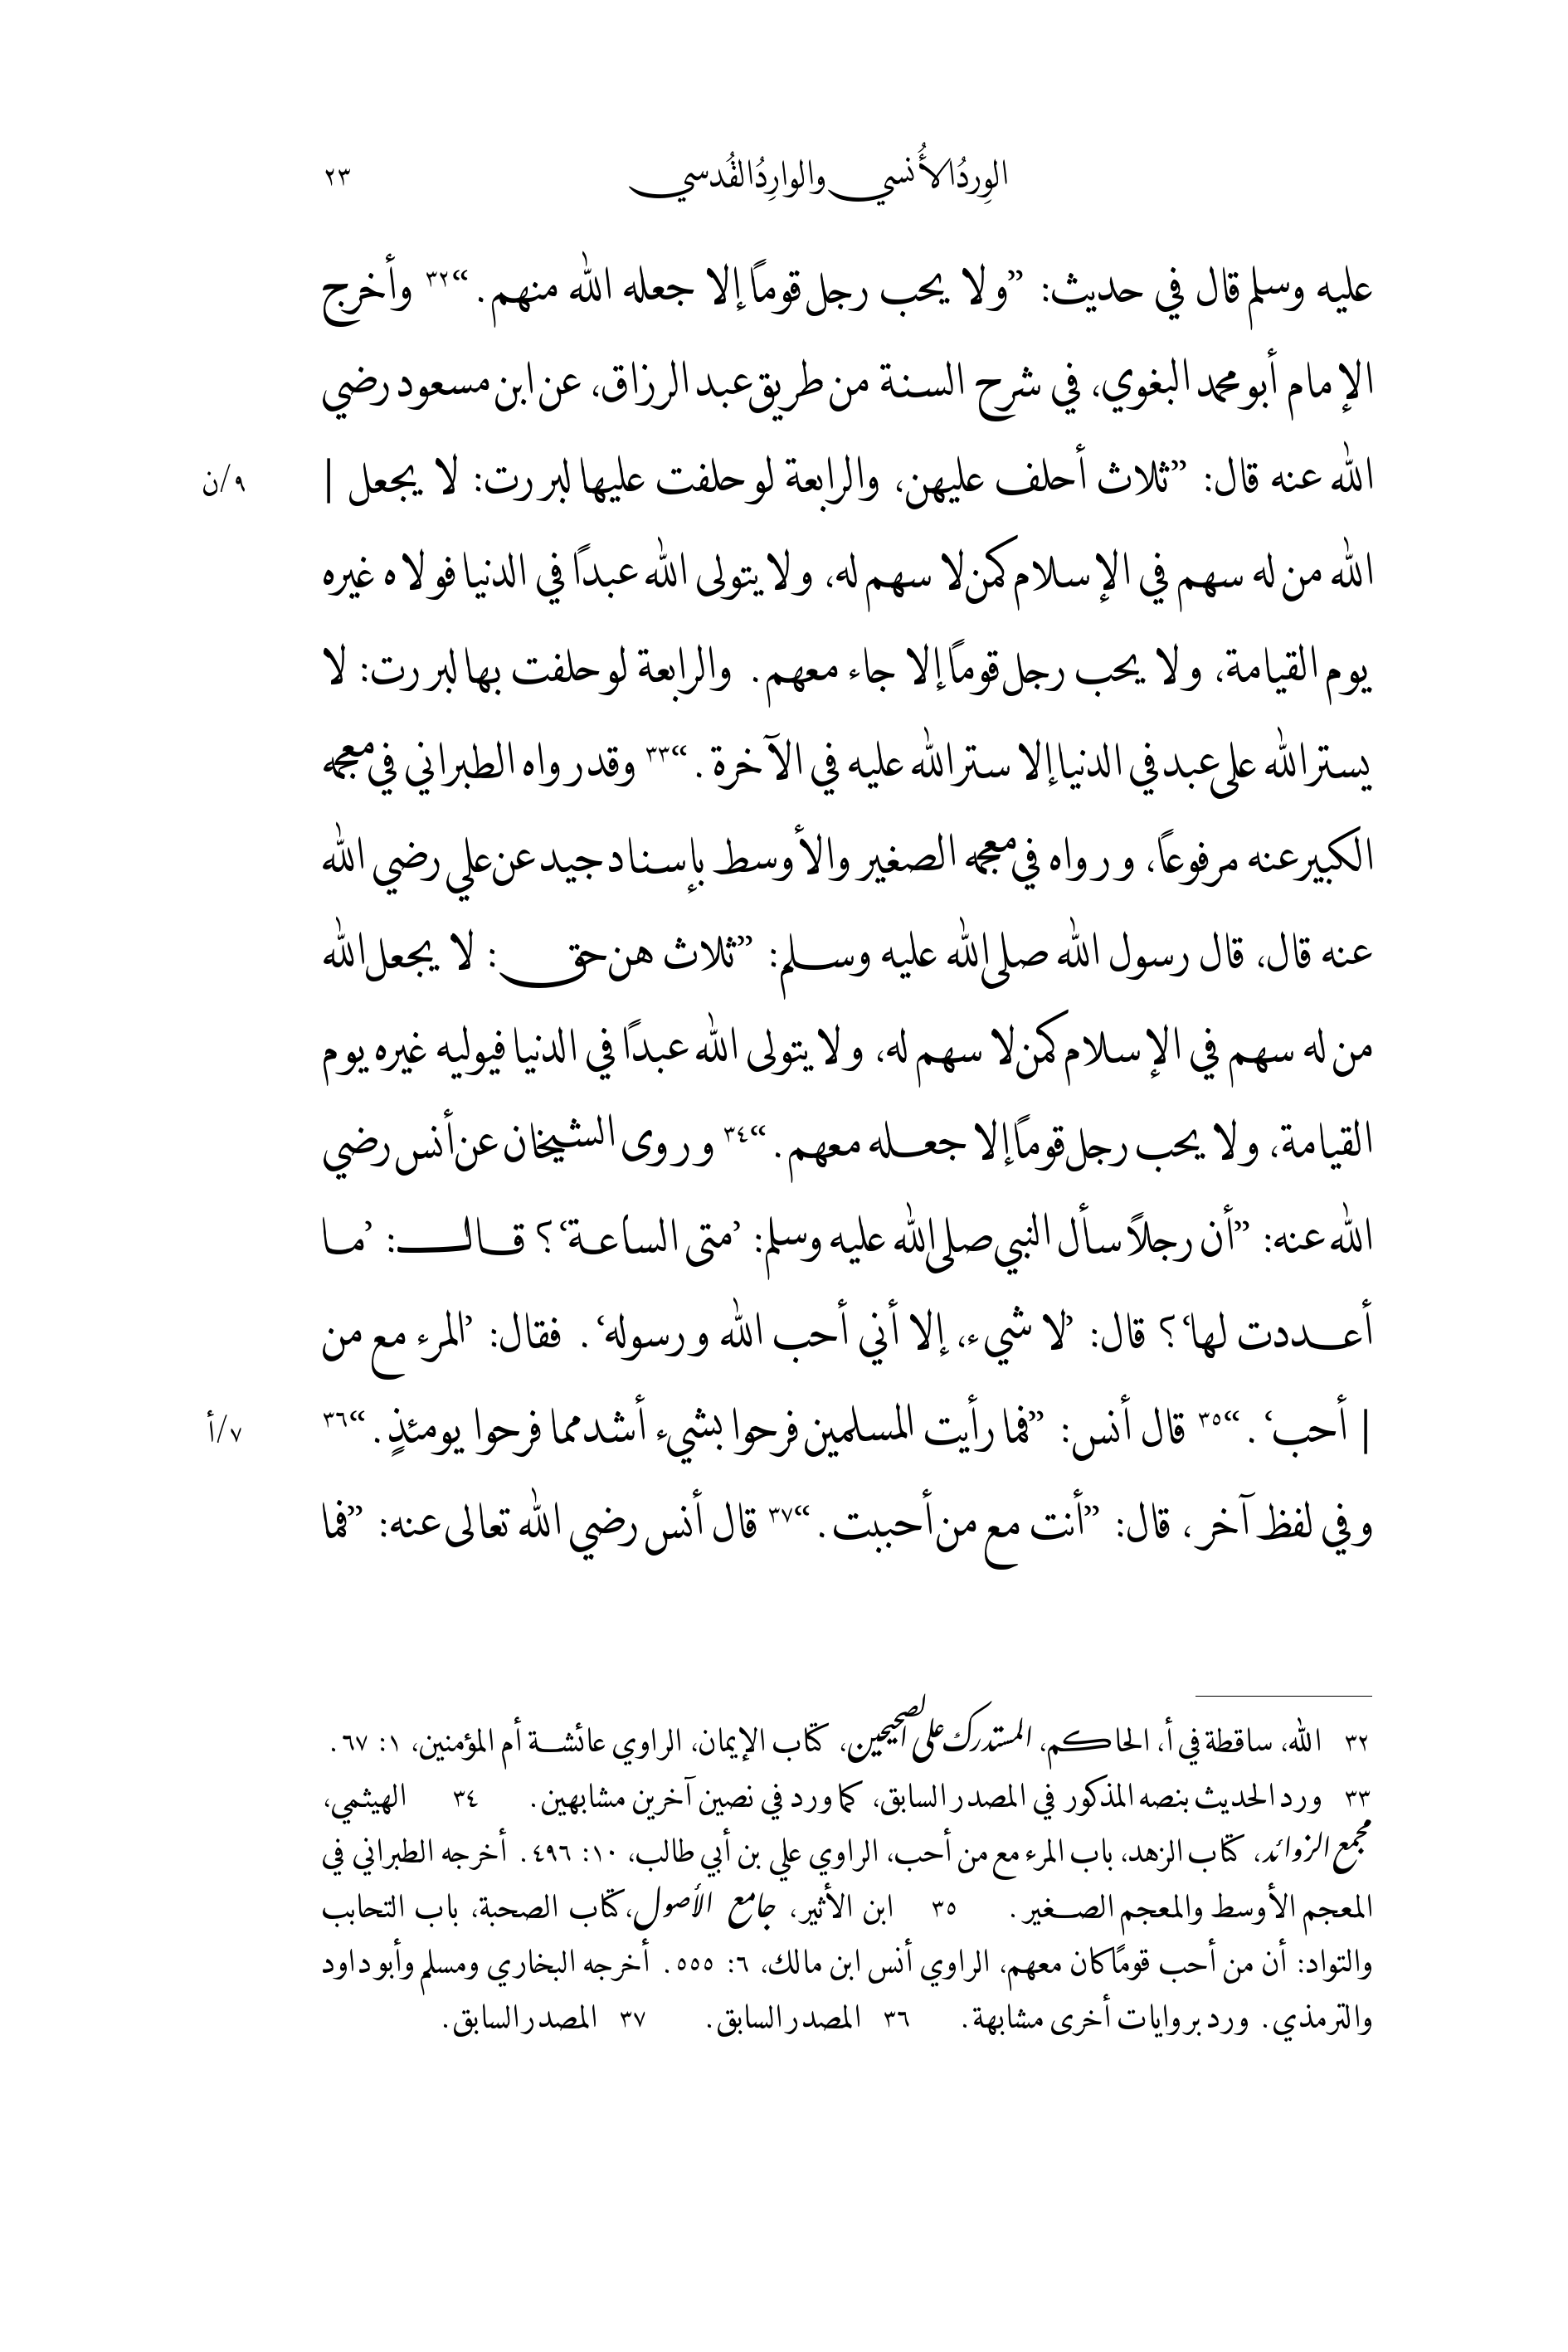 الوِردُ الأُنسي والوارِدُ القُدسي ٢٣
عليه وسلم قال في حديث: ”ولا يحب رجل قوماً إلا جعله الله منهم.“٣٢ وأخرج
الإمام أبو محمد البغوي، في شرح السنة من طريق عبد الرزاق، عن ابن مسعود رضي
الله عنه قال: ”ثلاث أحلف عليهن، والرابعة لو حلفت عليها لبررت: لا يجعل | ٩/ن
الله من له سهم في الإسلام كمن لا سهم له، ولا يتولى الله عبداً في الدنيا فولاه غيره
يوم القيامة، ولا يحب رجل قوماً إلا جاء معهم. والرابعة لو حلفت بها لبررت: لا
يستر الله على عبد في الدنيا إلا ستر الله عليه في الآخرة.“٣٣ وقد رواه الطبراني في معجمه
الكبير عنه مرفوعاً، ورواه في معجمه الصغير والأوسط بإسناد جيد عن علي رضي الله
عنه قال، قال رسول الله صلى الله عليه وسلم: ”ثلاث هن حق: لا يجعل الله
من له سهم في الإسلام كمن لا سهم له، ولا يتولى الله عبداً في الدنيا فيوليه غيره يوم
القيامة، ولا يحب رجل قوماً إلا جعله معهم.“٣٤ وروى الشيخان عن أنس رضي
الله عنه: ”أن رجلاً سأل النبي صلى الله عليه وسلم: ’متى الساعة‘؟ قال: ’ما
أعددت لها‘؟ قال: ’لا شيء، إلا أني أحب الله ورسوله‘. فقال: ’المرء مع من
| أحب‘.“٣٥ قال أنس: ”فما رأيت المسلمين فرحوا بشيء أشد مما فرحوا يومئذٍ.“٣٦ ٧/أ
وفي لفظ آخر، قال: ”أنت مع من أحببت.“٣٧ قال أنس رضي الله تعالى عنه: ”فما
٣٢ الله، ساقطة في أ، الحاكم، المستدرك على الصحيحين، كتاب الإيمان، الراوي عائشة أم المؤمنين، ١: ٦٧.
٣٣ ورد الحديث بنصه المذكور في المصدر السابق، كما ورد في نصين آخرين مشابهين. ٣٤ الهيثمي،
مجمع الزوائد، كتاب الزهد، باب المرء مع من أحب، الراوي علي بن أبي طالب، ١٠: ٤٩٦. أخرجه الطبراني في
المعجم الأوسط والمعجم الصغير. ٣٥ ابن الأثير، جامع الأصول، كتاب الصحبة، باب التحابب
والتواد: أن من أحب قوماً كان معهم، الراوي أنس ابن مالك، ٦: ٥٥٥. أخرجه البخاري ومسلم وأبو داود
والترمذي. ورد بروايات أخرى مشابهة. ٣٦ المصدر السابق. ٣٧ المصدر السابق.